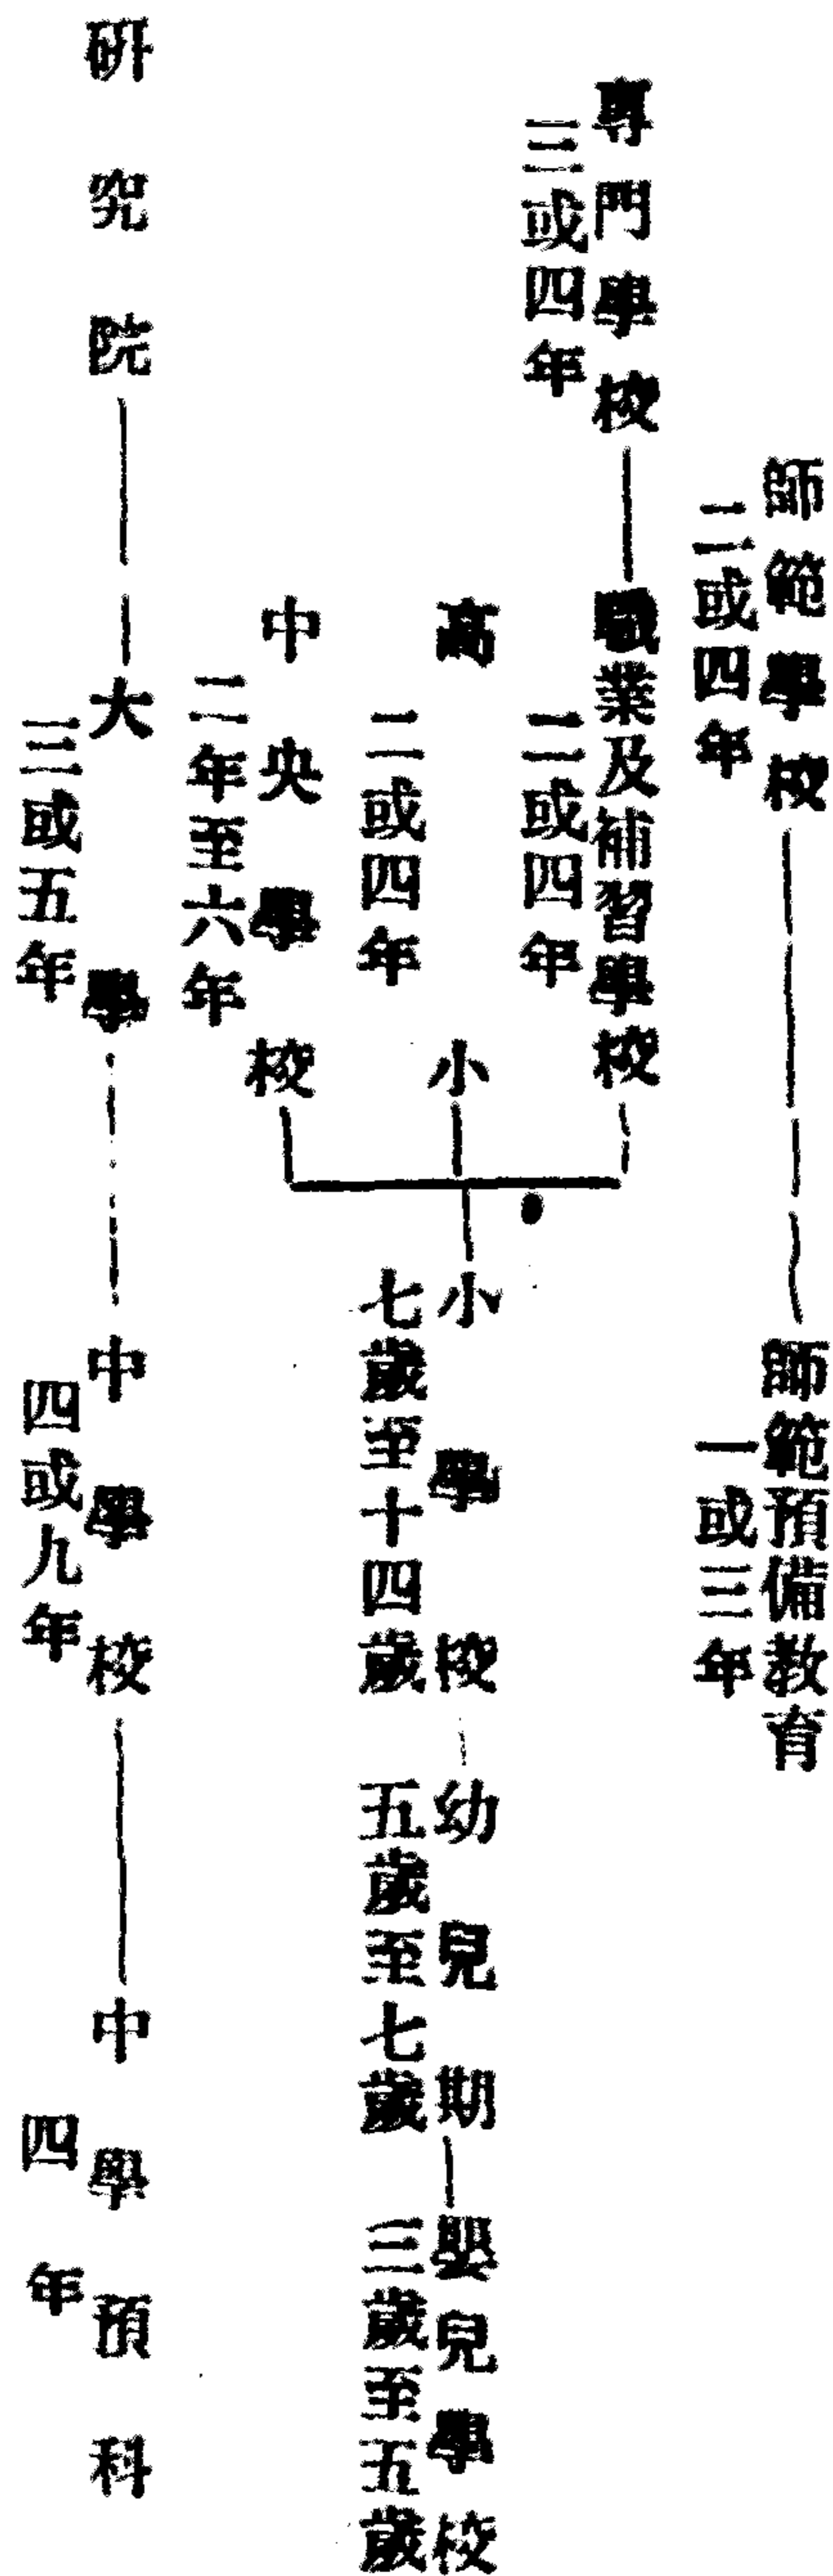 師範學校
二或四年
師範預備教育
一或三年
專門學校
三或四年
職業及補習學校
二或四年
高小
二或四年
小學校
七歲至十四歲
幼兒期
五歲至七歲
嬰兒學校
三歲至五歲
中央學校
二年至六年
研究院
大學
三或五年
中學校
四或九年
中學預科
四年